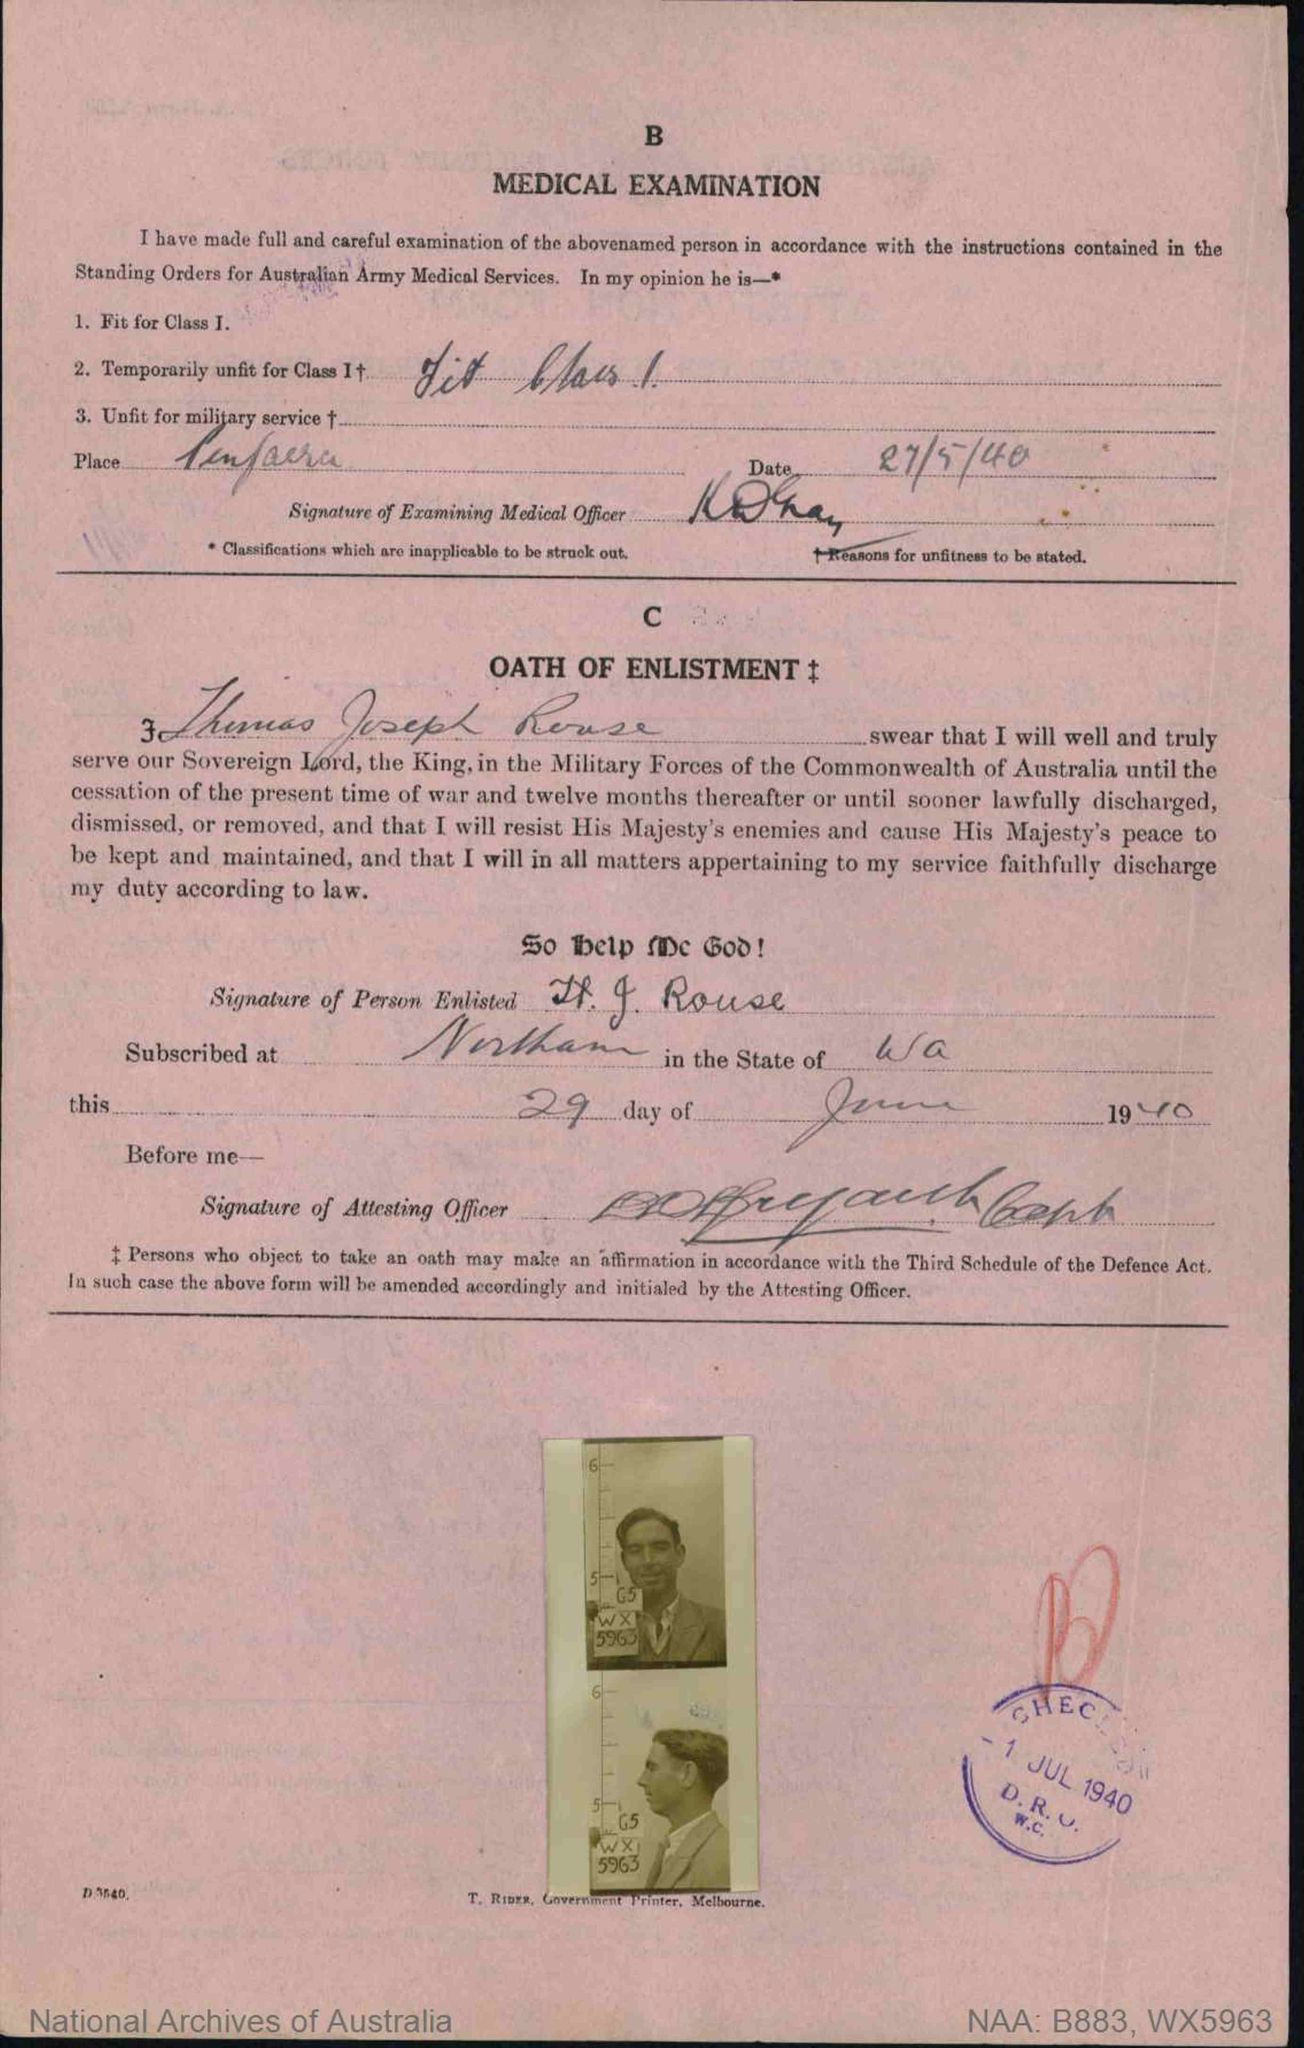 B
MEDICAL EXAMINATION
I have made full and careful examination of the abovenamed person in accordance with the instructions contained in the
Standing Orders for Australian Army Medical Services. In my opinion he is—*
1. Fit for Class I.
2. Temporarily unfit for Class I † Fit Class 1.
3. Unfit for military service †
Place Date 27/5/40
Signature of Examining Medical Officer
* Classifications which are inapplicable to be struck out. † Reasons for unfitness to be stated.
C
OATH OF ENLISTMENT ‡
I, Thomas Joseph Rouse swear that I will well and truly
serve our Sovereign Lord, the King, in the Military Forces of the Commonwealth of Australia until the
cessation of the present time of war and twelve months thereafter or until sooner lawfully discharged,
dismissed, or removed, and that I will resist His Majesty's enemies and cause His Majesty's peace to
be kept and maintained, and that I will in all matters appertaining to my service faithfully discharge
my duty according to law.
So Help Me God!
Signature of Person Enlisted J. Rouse
Subscribed at Northam in the State of Wa
this 29 day of June 1940
Before me—
Signature of Attesting Officer Capt
‡ Persons who object to take an oath may make an affirmation in accordance with the Third Schedule of the Defence Act.
In such case the above form will be amended accordingly and initialed by the Attesting Officer.
6
5
G5
WX
5963
6
5
G5
WX
5963
- 1 JUL 1940
D. R. O.
W.C.
D 3540.
T. RIDER, Government Printer, Melbourne.
National Archives of Australia NAA: B883, WX5963